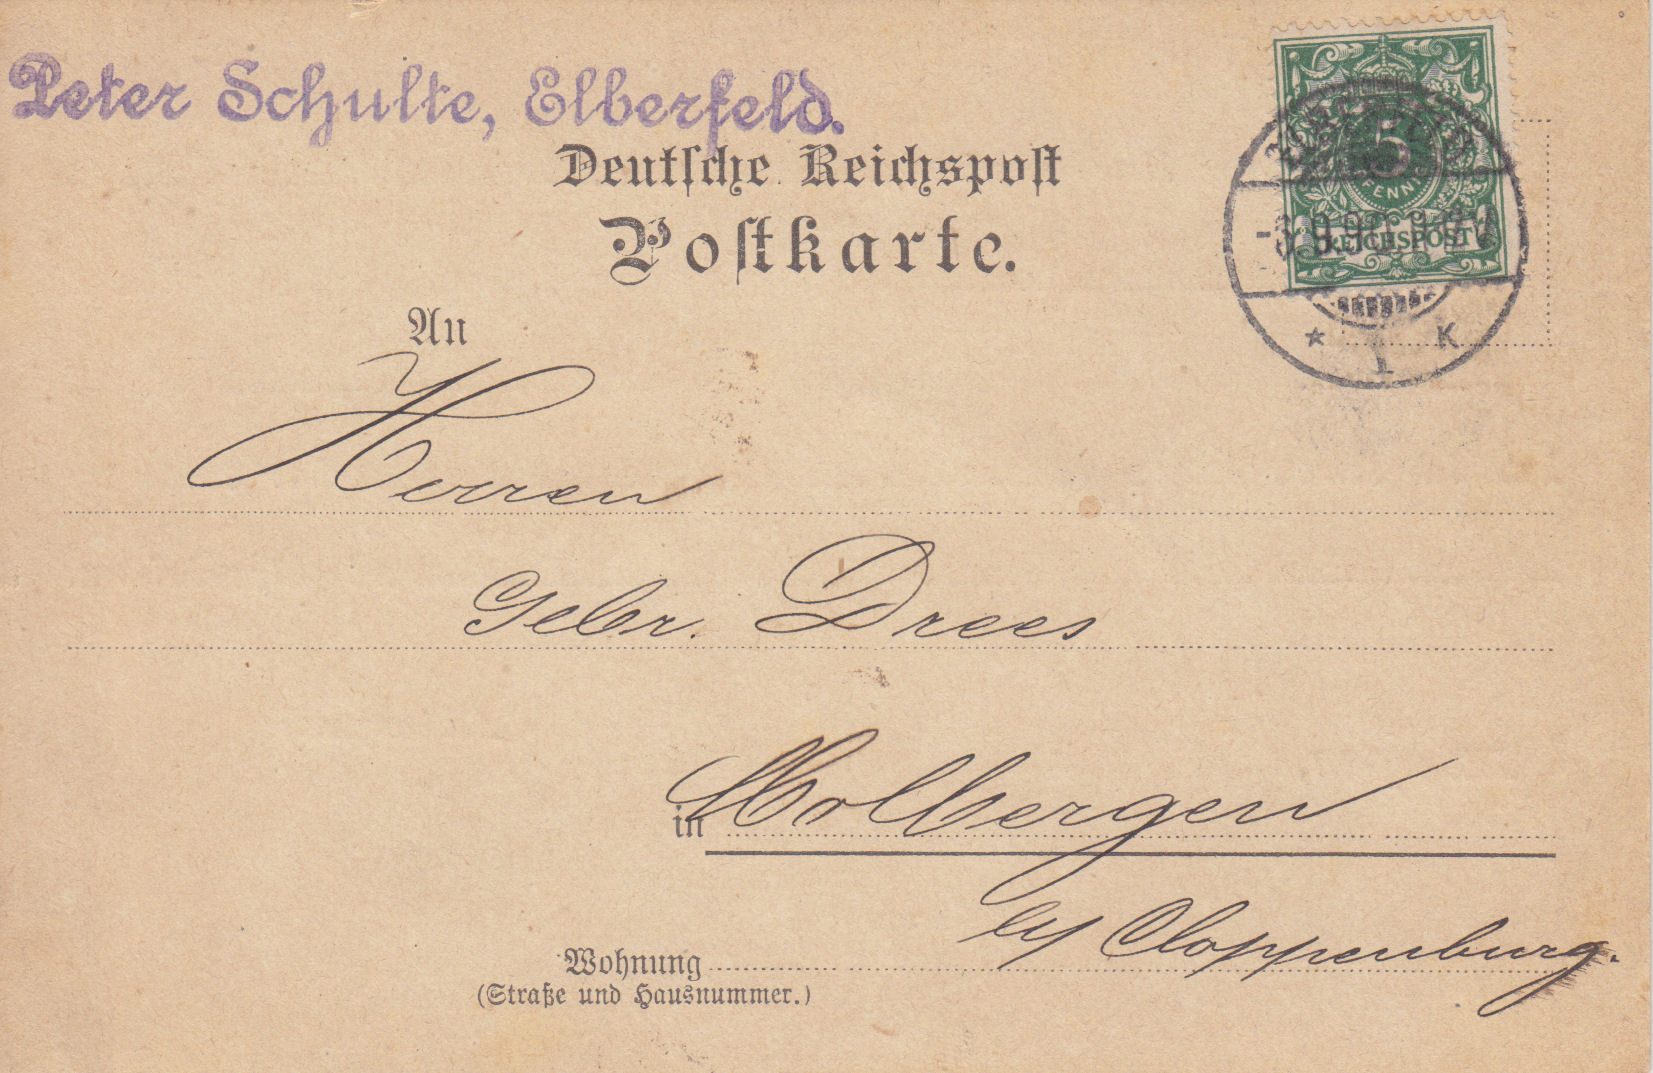 Peter Schulte, Elberfeld.
Deutſche Reichspoſt
Poſtkarte.
5
PFENNIG
REICHSPOST
* 1 K
An
Herren
Gebr. Drees
in Molbergen
b/ Cloppenburg.
Wohnung
(Straße und Hausnummer.)